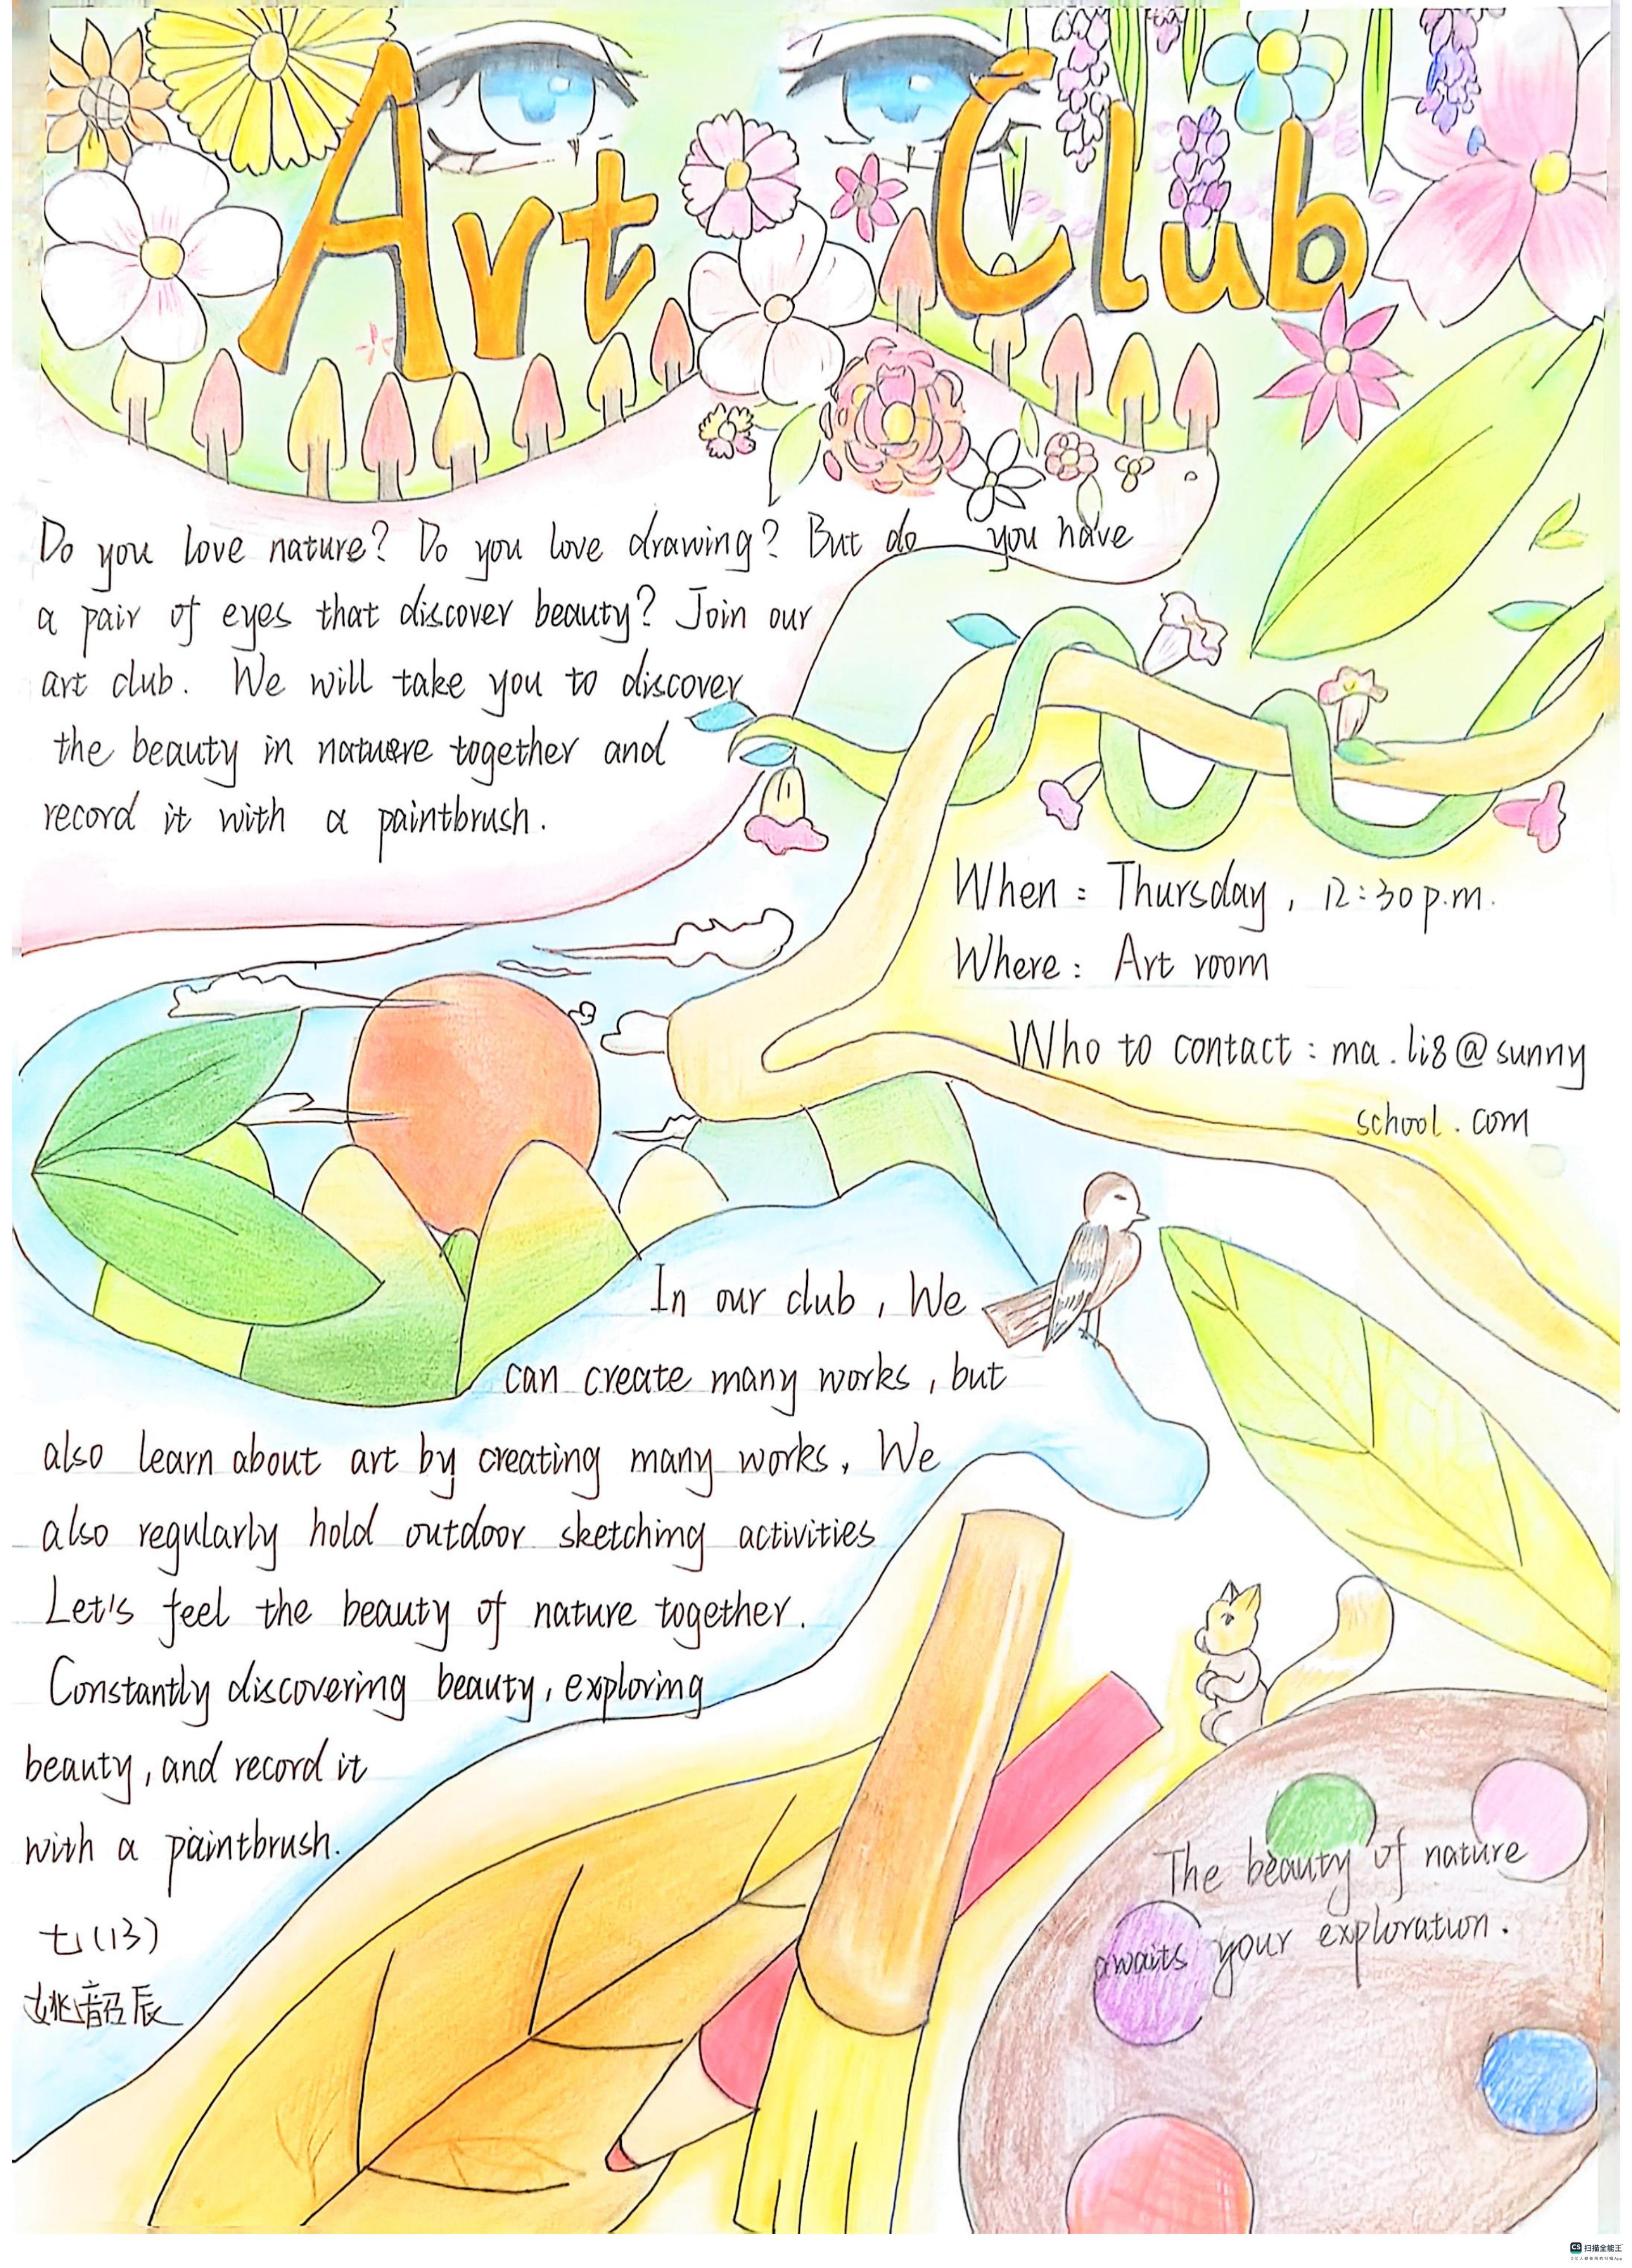 Art Club
Do you love nature? Do you love drawing? But do you have
a pair of eyes that discover beauty? Join our
art club. We will take you to discover
the beauty in nature together and
record it with a paintbrush.
When: Thursday, 12:30 p.m.
Where: Art room
Who to contact: ma.li8@sunny
school.com
In our club, We
can create many works, but
also learn about art by creating many works, We
also regularly hold outdoor sketching activities
Let's feel the beauty of nature together.
Constantly discovering beauty, exploring
beauty, and record it
with a paintbrush.
七(13)
姚韶辰
The beauty of nature
awaits your exploration.
CS 扫描全能王